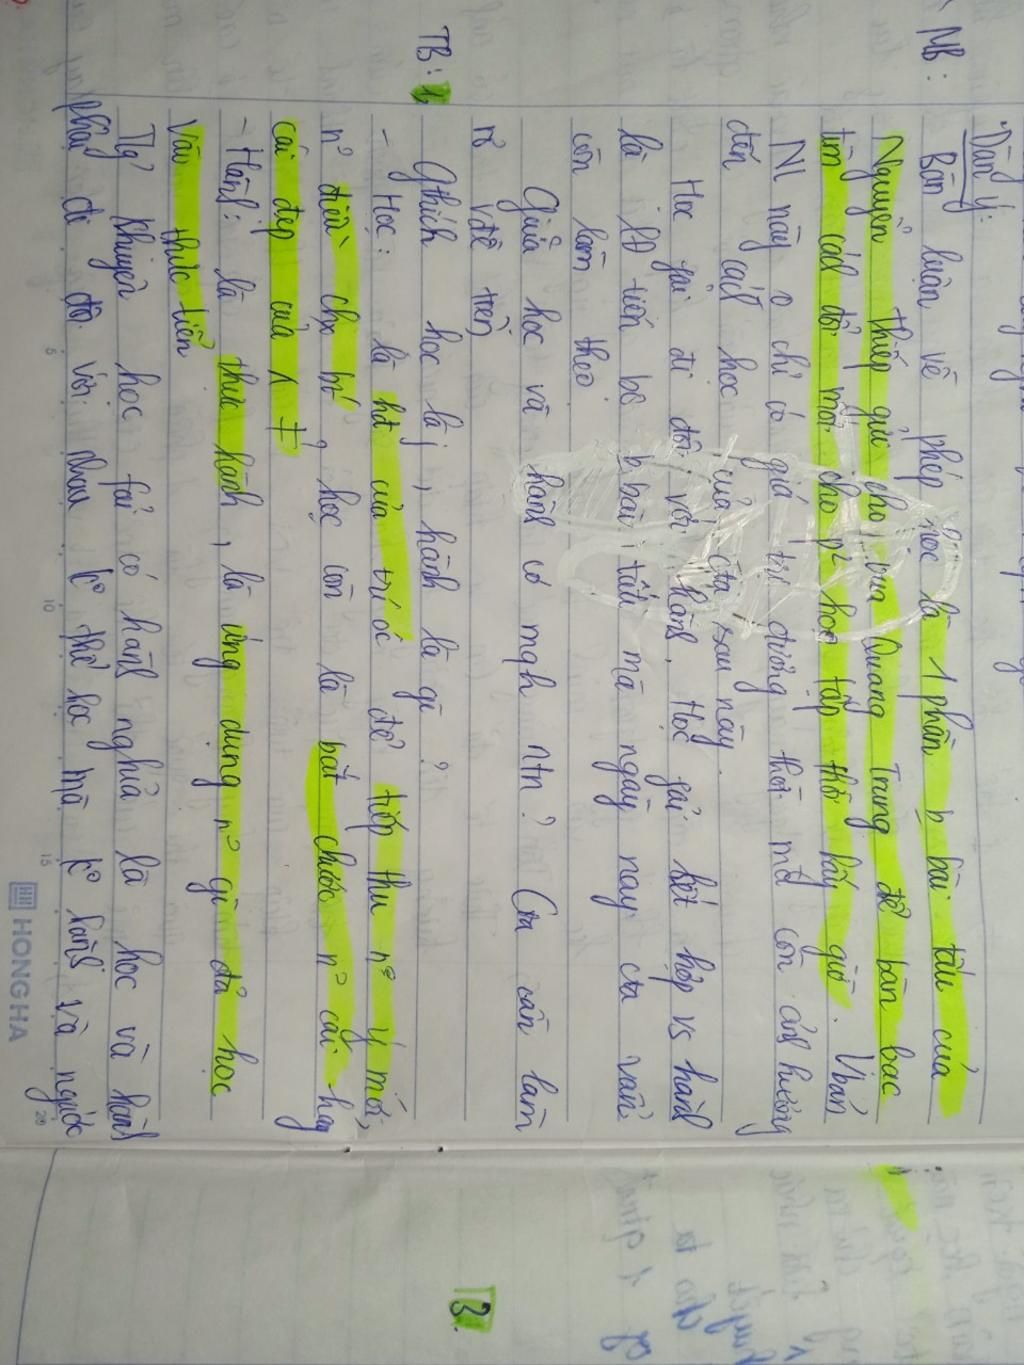 Dàn ý:
MB: Bàn luận về phép học là 1 phần b bài tấu của
Nguyễn Thiếp gửi cho vua Quang Trung để bàn bạc
tìm cách đổi mới cho p² học tập thời bấy giờ. Vbản
này o chỉ có giá trị đương thời mà còn ảnh hưởng
đến cách học của cta sau này.
Học fải đi đôi với hành. Học fải kết hợp vs hành
là tiến bộ b bài tấu mà ngày nay cta vẫn
còn làm theo
Giữa học và hành có mqh ntn? Cta cần làm
rõ vđề trên
TB: 1 Gthích học là j, hành là gì?
- Học: là hđ của trí óc để tiếp thu n° ý mới,
n° điều chx bt, học còn là bắt chước n° cái hay
cái đẹp của ≠
- Hành: là thực hành, là ứng dụng n° gì đã học
vào thực tiễn
khuyên học fải có hành nghĩa là học và hành
phải đi đôi với nhau k° thể học mà k° hành và ngược
5
10
15
20
HONG HA
3.